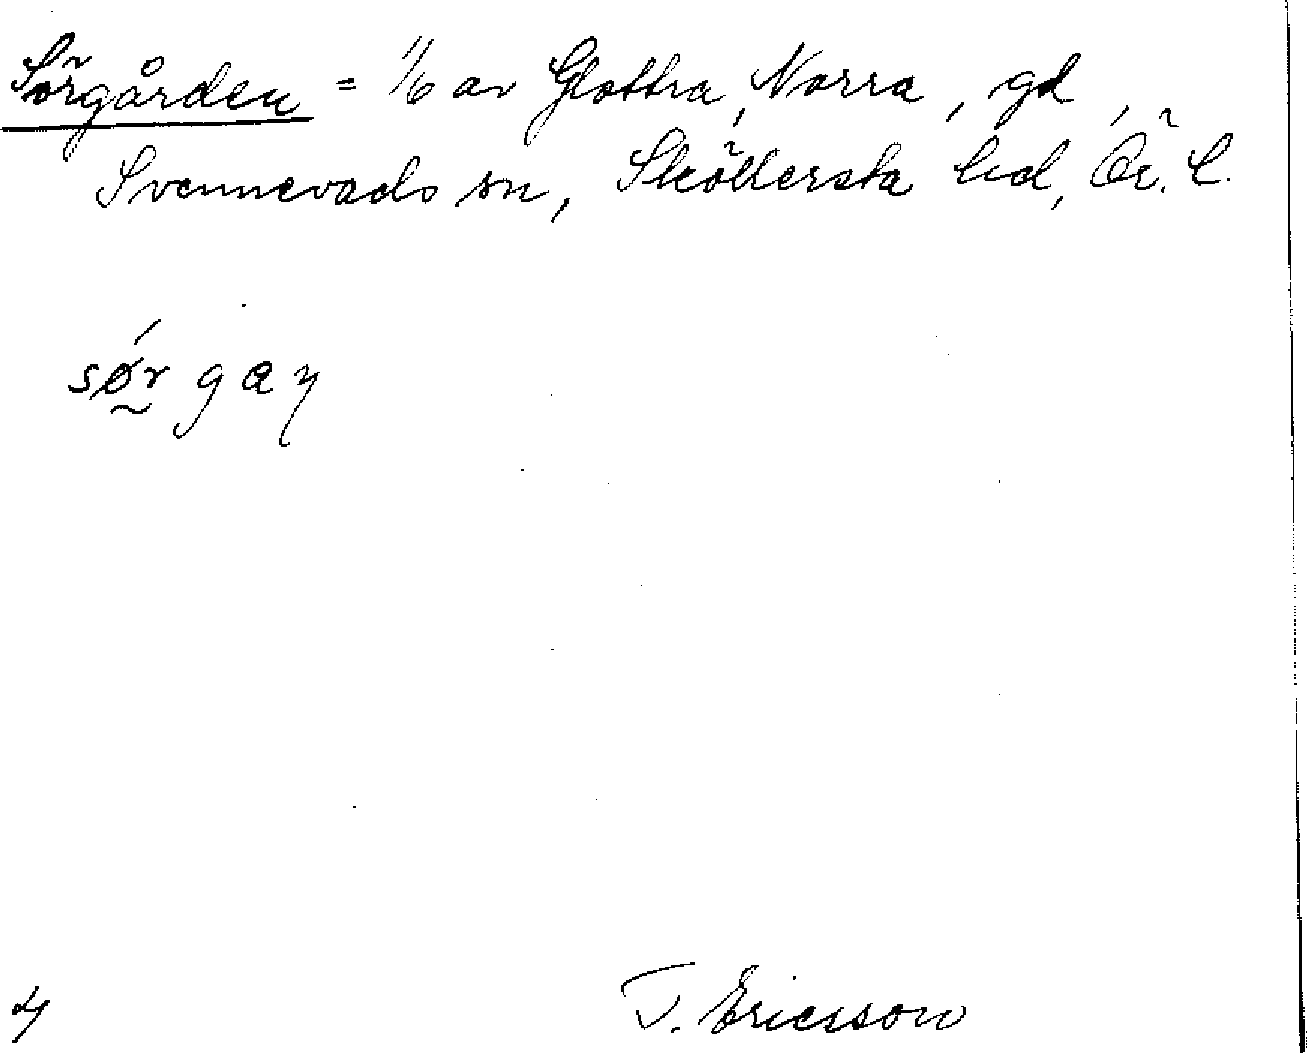 Sörgården = 1/6 av Glottra, Norra, gd,
Svennevads sn, Sköllersta hd, Ör. l.
sǿ̰r gaŋ
4
T. Ericsson